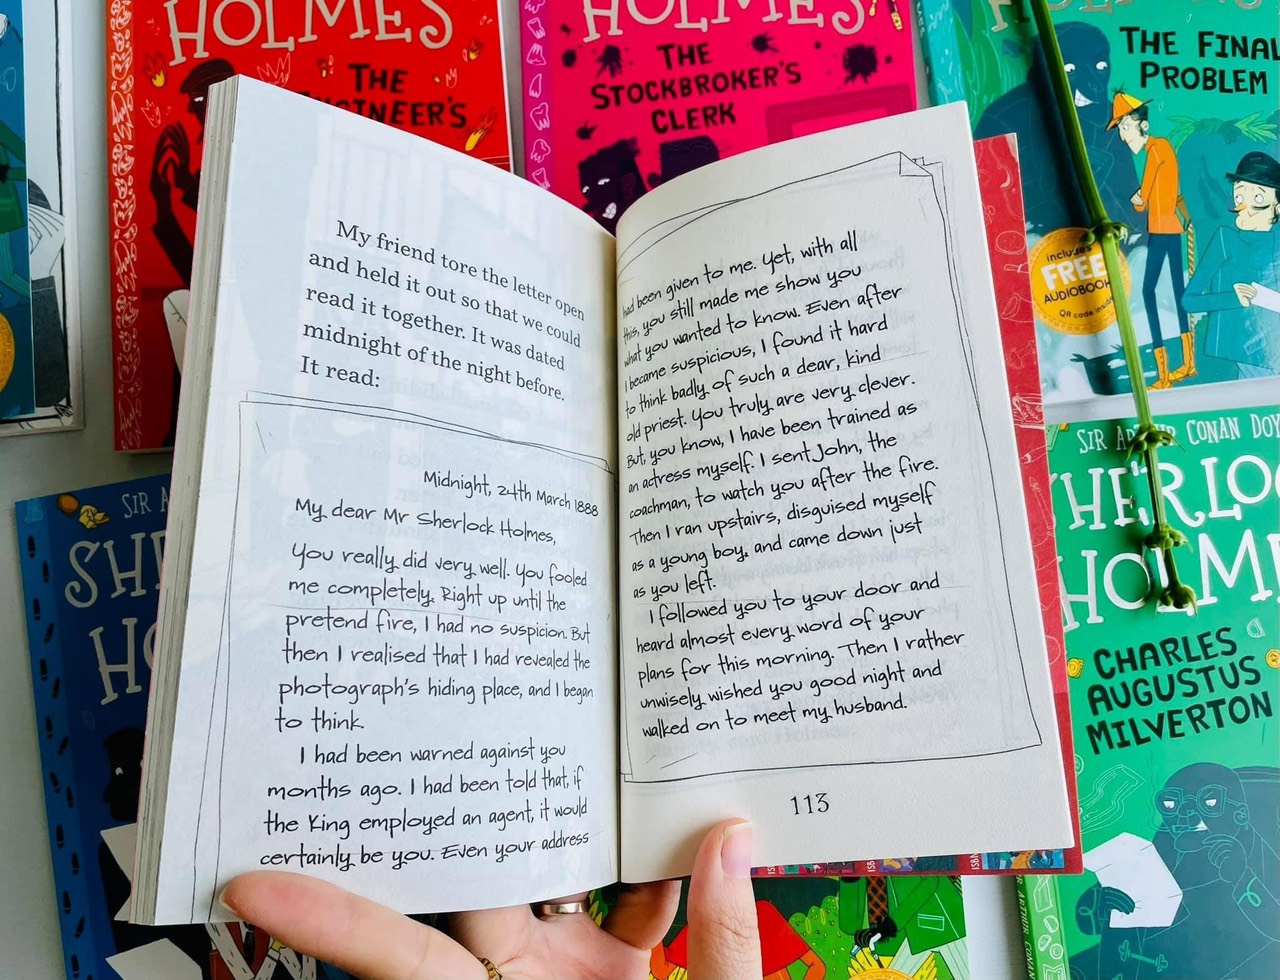 HOLMES
THE
ENGINEER'S
HOLMES
THE
STOCKBROKER'S
CLERK
HOLMES
THE FINAL
PROBLEM
includes
FREE
AUDIOBOOK
QR code inside
My friend tore the letter open
and held it out so that we could
read it together. It was dated
midnight of the night before.
It read:
Midnight, 24th March 1888
My dear Mr Sherlock Holmes,
You really did very well. You fooled
me completely. Right up until the
pretend fire, I had no suspicion. But
then I realised that I had revealed the
photograph's hiding place, and I began
to think.
I had been warned against you
months ago. I had been told that, if
the King employed an agent, it would
certainly be you. Even your address
had been given to me. Yet, with all
this, you still made me show you
what you wanted to know. Even after
I became suspicious, I found it hard
to think badly of such a dear, kind
old priest. You truly are very clever.
But, you know, I have been trained as
an actress myself. I sent John, the
coachman, to watch you after the fire.
Then I ran upstairs, disguised myself
as a young boy, and came down just
as you left.
I followed you to your door and
heard almost every word of your
plans for this morning. Then I rather
unwisely wished you good night and
walked on to meet my husband.
113
SIR A
SHE
HO
SIR ARTHUR CONAN DOY
SHERLOC
HOLME
CHARLES
AUGUSTUS
MILVERTON
ISBN
ARTHUR CONAN